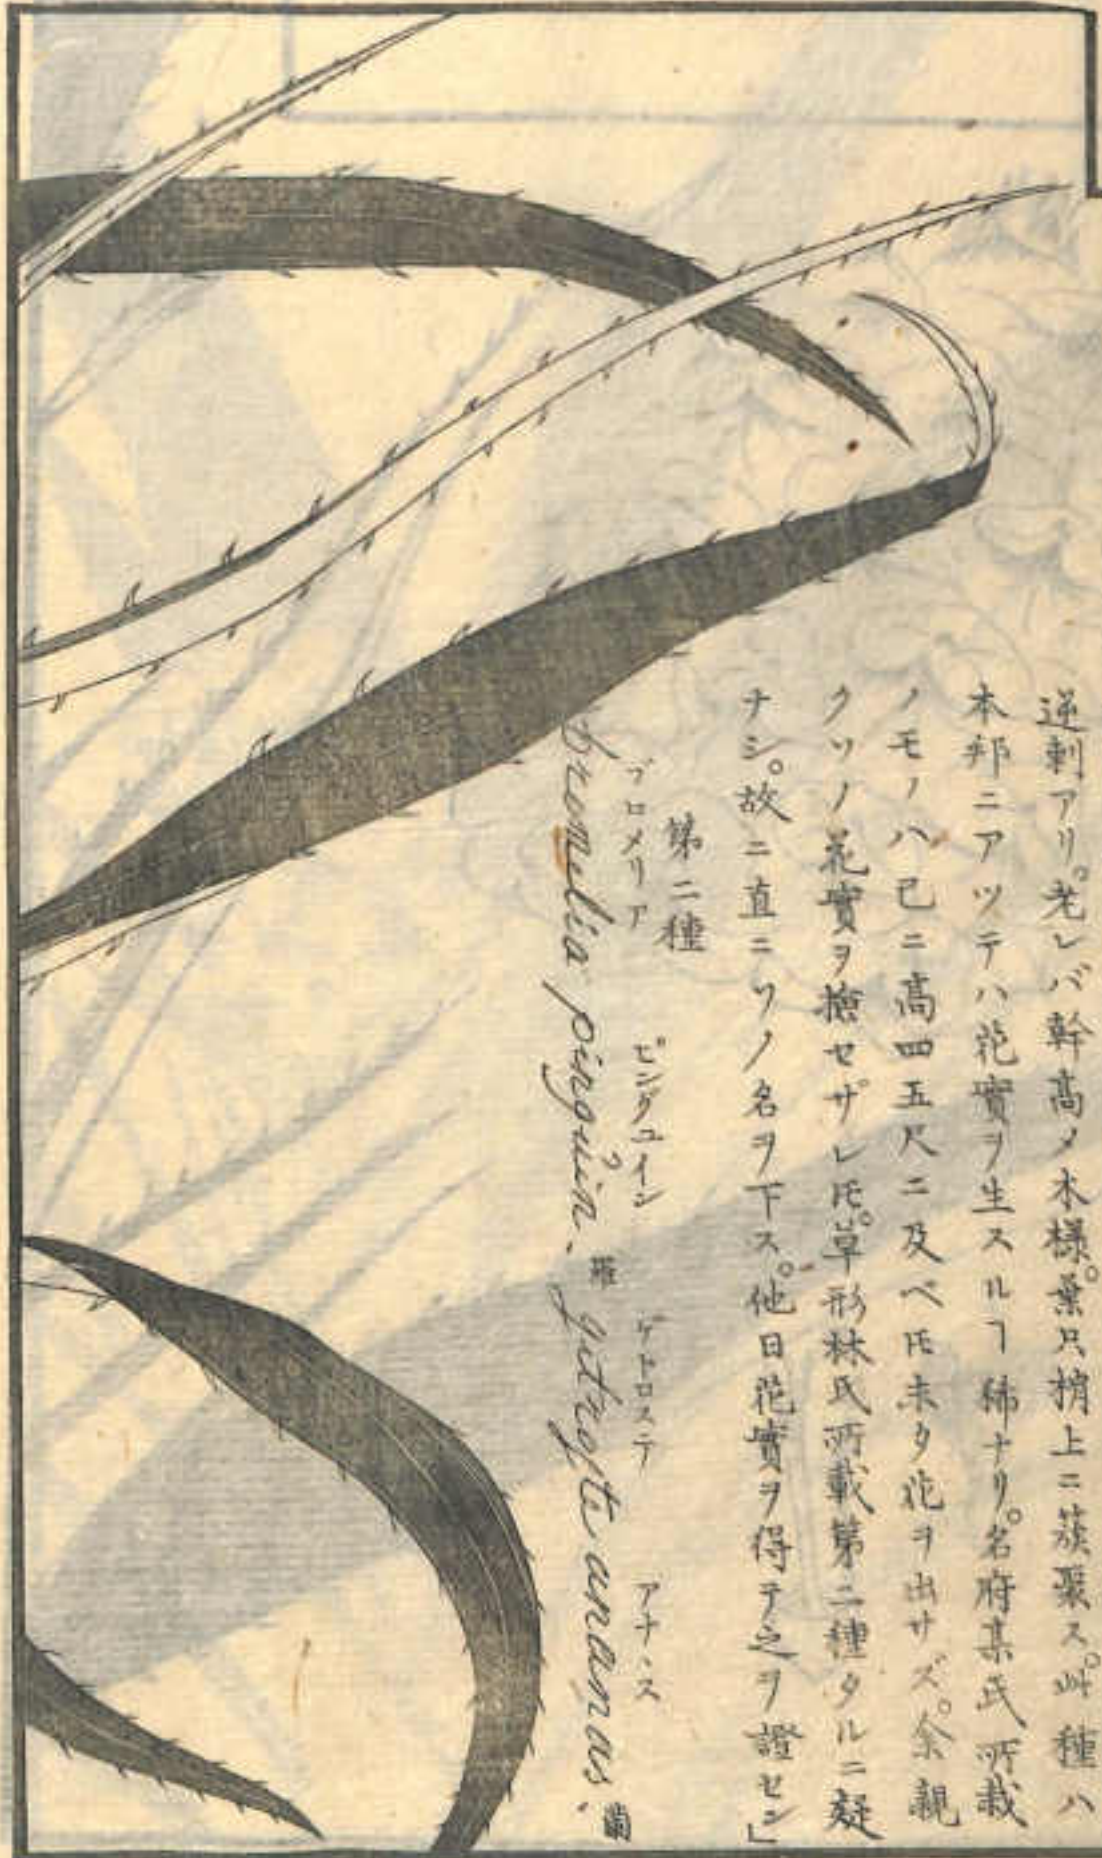 逆刺アリ。老レバ幹高メ木様。葉只梢上ニ簇聚ス。此種ハ
本邦ニアツテハ花實ヲ生スルヿ稀ナリ。名府某氏所栽
ノモノハ已ニ高四五尺ニ及ベ𪜈未タ花ヲ出サズ。余親
クソノ花實ヲ撿セザレ𪜈。草形林氏所載第二種タルニ疑
ナシ。故ニ直ニソノ名ヲ下ス。他日花實ヲ得テ之ヲ證セン」
第二種
ブロメリア ピングユイン ゲトロステ アナヽス
bromelia pinguin. 羅 gitrogte ananas. 蘭